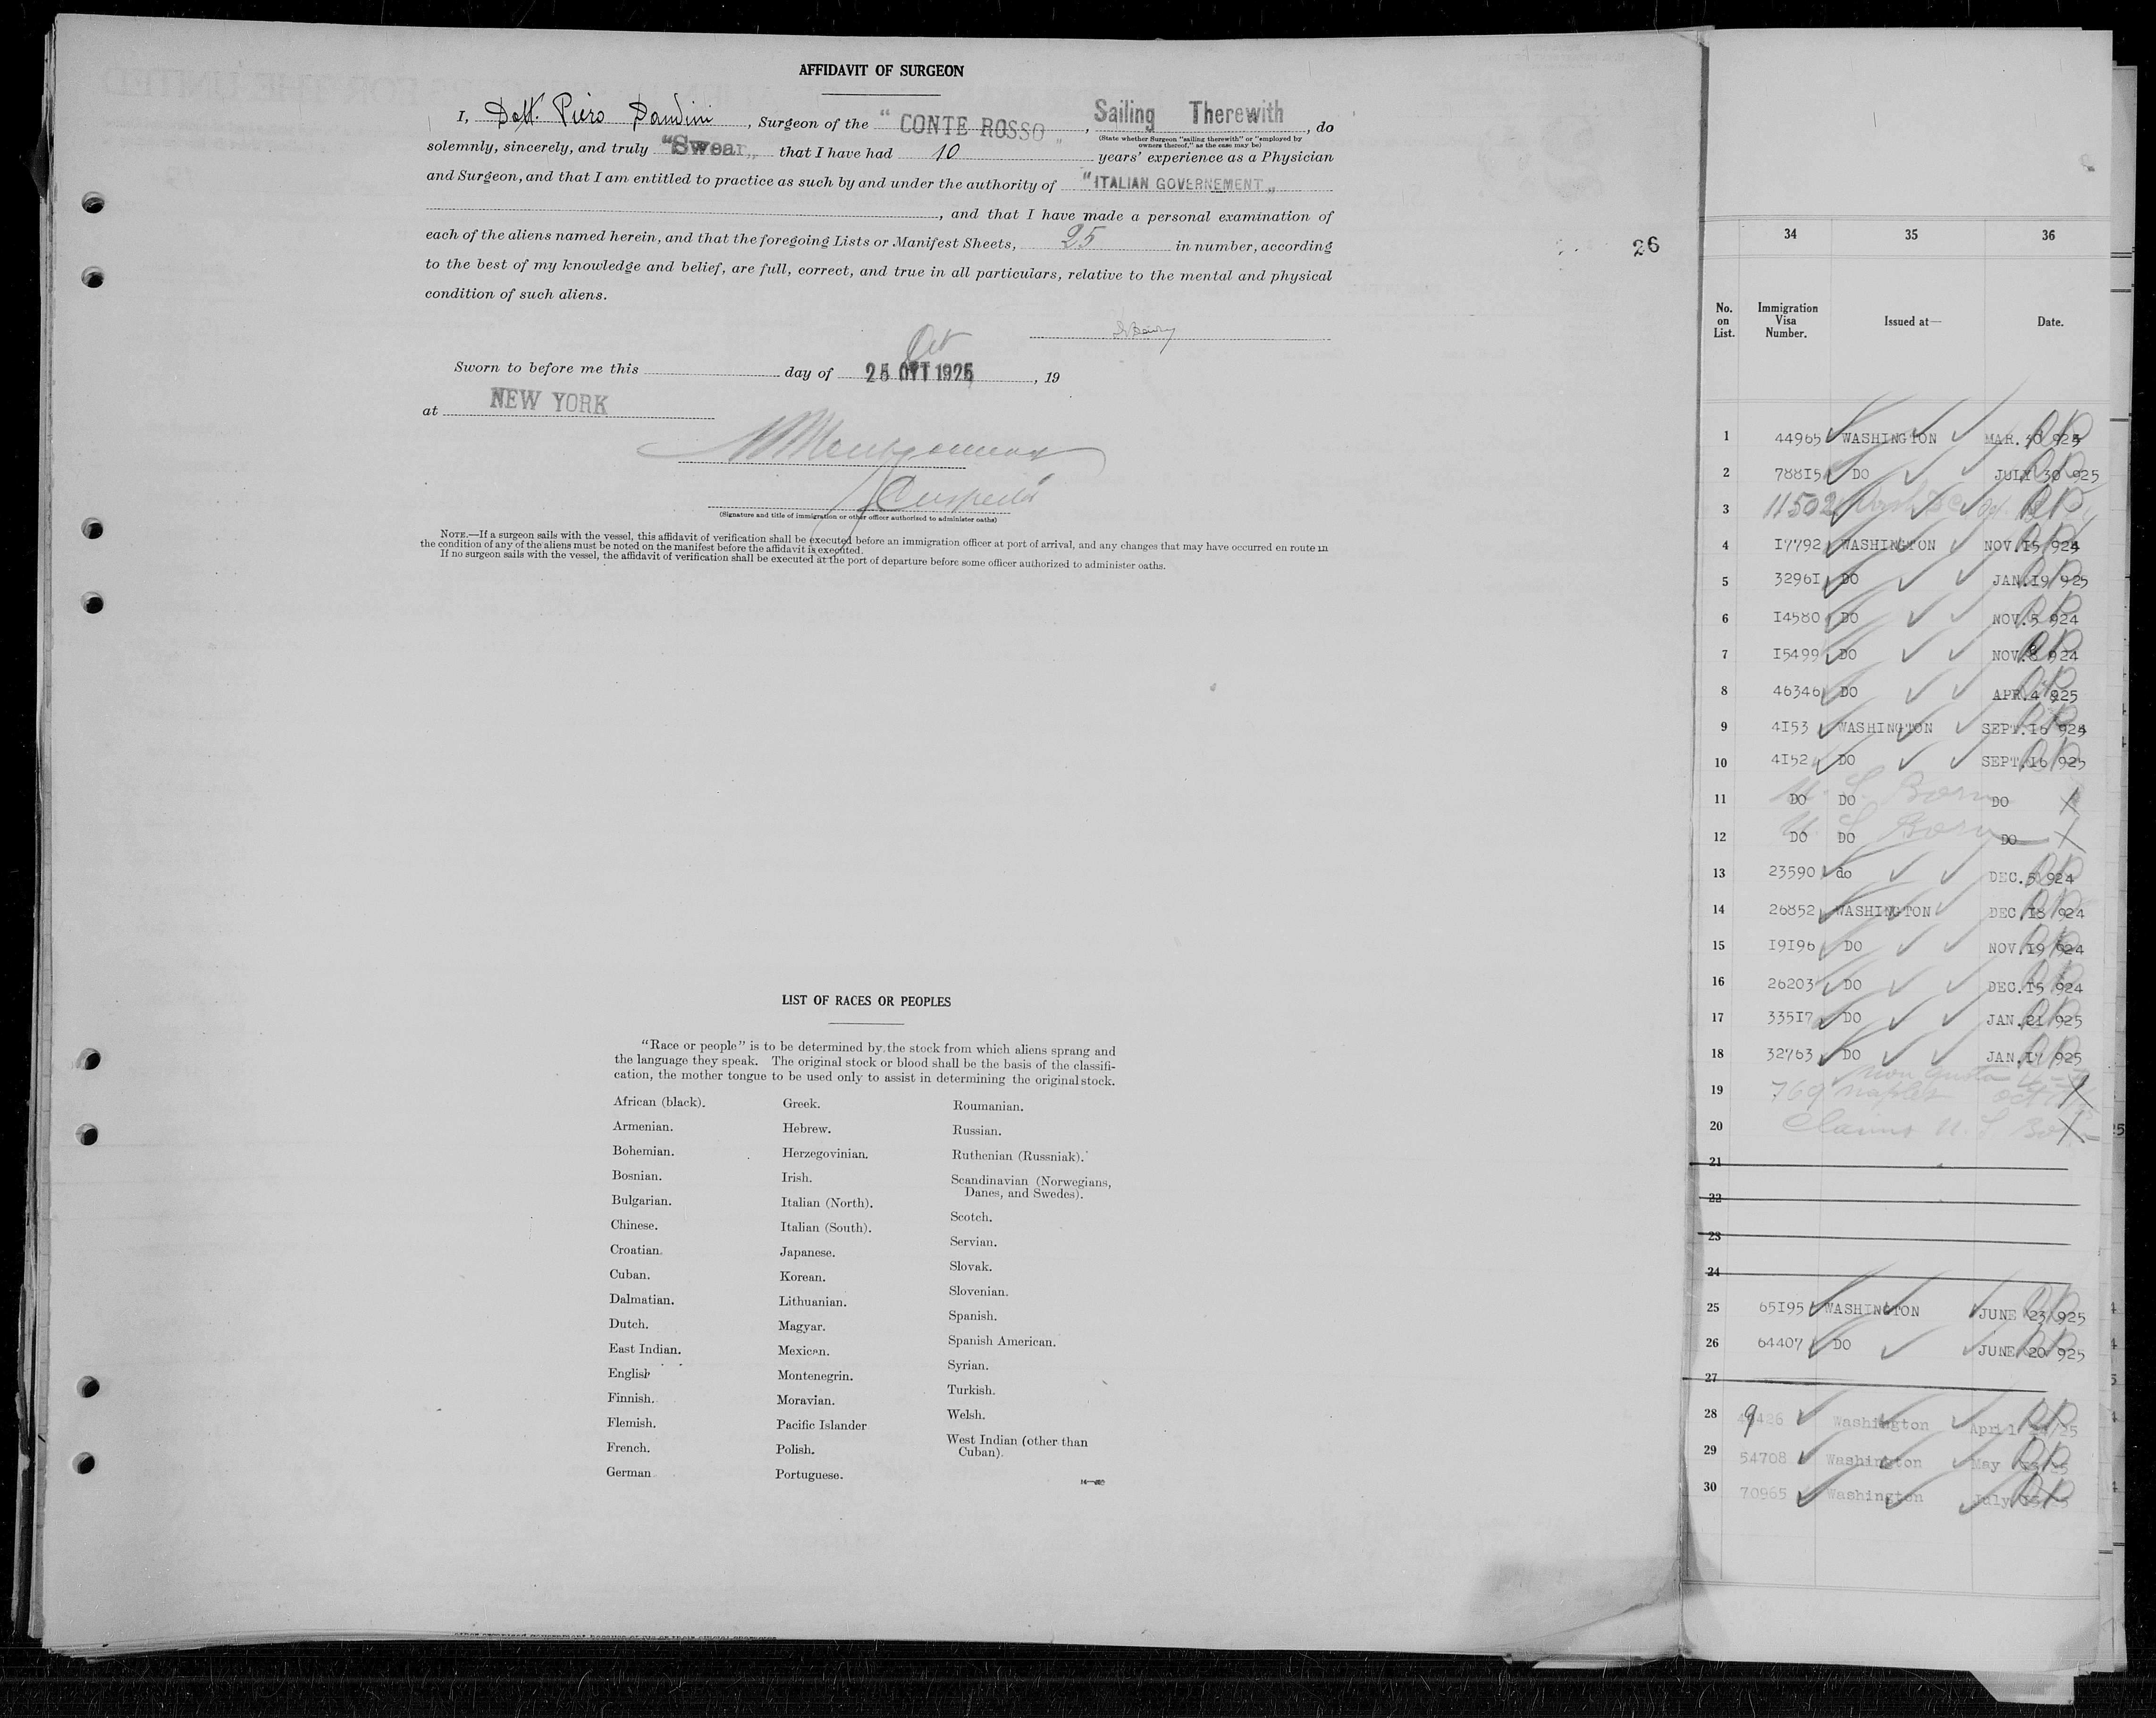 AFFIDAVIT OF SURGEON
I, Dott. Piero Dandini, Surgeon of the "CONTE ROSSO", Sailing Therewith, do
(State whether Surgeon "sailing therewith" or "employed by
owners thereof," as the case may be)
solemnly, sincerely, and truly "Swear" that I have had 10 years' experience as a Physician
and Surgeon, and that I am entitled to practice as such by and under the authority of "ITALIAN GOVERNEMENT"
, and that I have made a personal examination of
each of the aliens named herein, and that the foregoing Lists or Manifest Sheets, 25 in number, according
to the best of my knowledge and belief, are full, correct, and true in all particulars, relative to the mental and physical
condition of such aliens.
26
Oct
Sworn to before me this day of 25 OTT 1925, 19
at NEW YORK
(Signature and title of immigration or other officer authorized to administer oaths)
NOTE.—If a surgeon sails with the vessel, this affidavit of verification shall be executed before an immigration officer at port of arrival, and any changes that may have occurred en route in
the condition of any of the aliens must be noted on the manifest before the affidavit is executed.
If no surgeon sails with the vessel, the affidavit of verification shall be executed at the port of departure before some officer authorized to administer oaths.
LIST OF RACES OR PEOPLES
"Race or people" is to be determined by the stock from which aliens sprang and
the language they speak. The original stock or blood shall be the basis of the classifi-
cation, the mother tongue to be used only to assist in determining the original stock.
African (black).
Armenian.
Bohemian.
Bosnian.
Bulgarian.
Chinese.
Croatian.
Cuban.
Dalmatian.
Dutch.
East Indian.
English
Finnish.
Flemish.
French.
German
Greek.
Hebrew.
Herzegovinian.
Irish.
Italian (North).
Italian (South).
Japanese.
Korean.
Lithuanian.
Magyar.
Mexican.
Montenegrin.
Moravian.
Pacific Islander
Polish.
Portuguese.
Roumanian.
Russian.
Ruthenian (Russniak).
Scandinavian (Norwegians,
Danes, and Swedes).
Scotch.
Servian.
Slovak.
Slovenian.
Spanish.
Spanish American.
Syrian.
Turkish.
Welsh.
West Indian (other than
Cuban).
34 35 36
No. on List. Immigration Visa Number. Issued at— Date.
1 44965 WASHINGTON MAR. 925
2 78815 DO JULY 30 925
3 11502
4 17792 WASHINGTON NOV.15 924
5 32961 DO JAN.19 925
6 14580 DO NOV.5 924
7 15499 DO NOV.8 924
8 46346 DO APR.4 925
9 4153 WASHINGTON SEPT.16 924
10 4152 DO SEPT.16 925
11 DO DO DO U. S. Born
12 DO DO DO U S Born
13 23590 do DEC.5 924
14 26852 WASHINGTON DEC.18 924
15 19196 DO NOV.19 924
16 26203 DO DEC.15 924
17 33517 DO JAN.21 925
18 32763 DO JAN.17 925
19 769 Naples Oct
20 Claims U. S Born
21
22
23
24
25 65195 WASHINGTON JUNE 23 925
26 64407 DO JUNE 20 925
27
28 Washington April
29 54708 Washington May
30 70965 Washington July